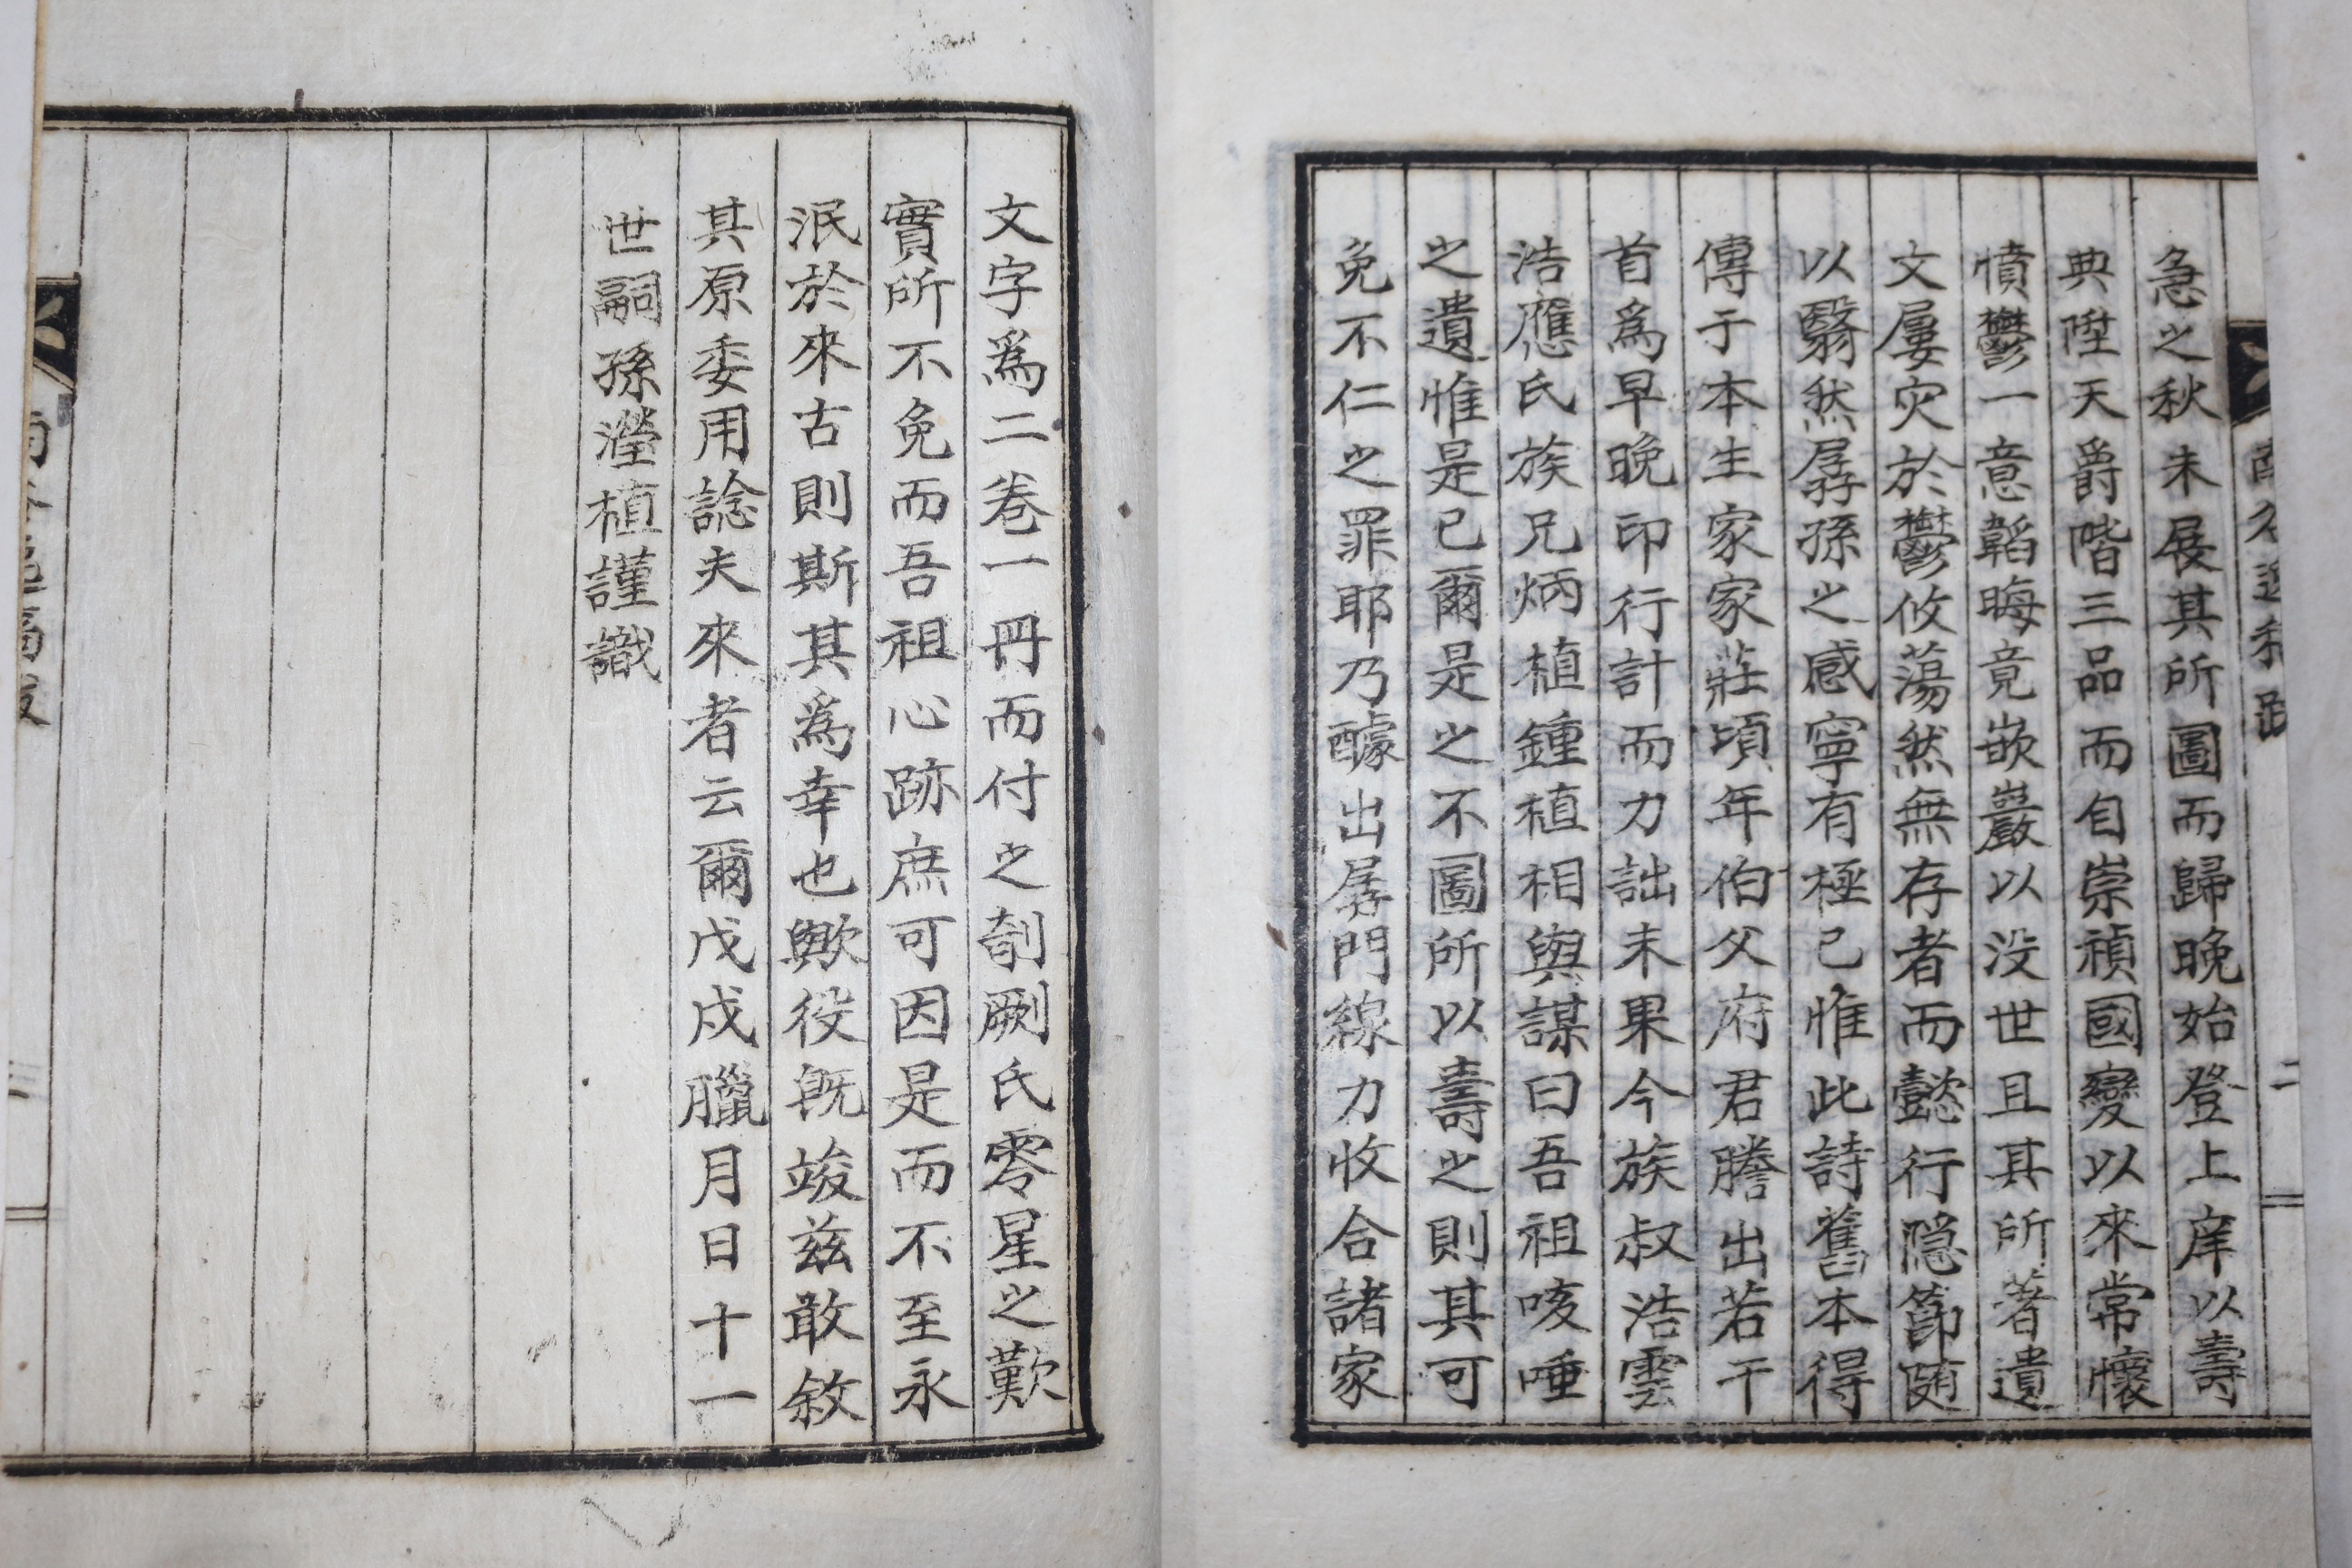 急之秋未展其所圖而歸晩始登上庠以壽
典陞天爵階三品而自崇禎國變以來常懷
憤鬱一意韜晦竟嵌巖以没世且其所著遺
文屢灾於鬱攸蕩然無存者而懿行隱節随
以翳然孱孫之感寧有極已惟此詩舊本得
傳于本生家家莊頃年伯父府君謄出若干
首爲早晩印行計而力詘未果今族叔浩雲
浩應氏族兄炳植鍾植相與謀曰吾祖咳唾
之遺惟是已爾是之不圖所以壽之則其可
免不仁之罪耶乃醵出孱門線力收合諸家
文字爲二卷一冊而付之剞劂氏零星之歎
實所不免而吾祖心跡庶可因是而不至永
泯於來古則斯其爲幸也歟役旣竣玆敢敘
其原委用諗夫來者云爾戊戌臘月日十一
世嗣孫瀅植謹識
二